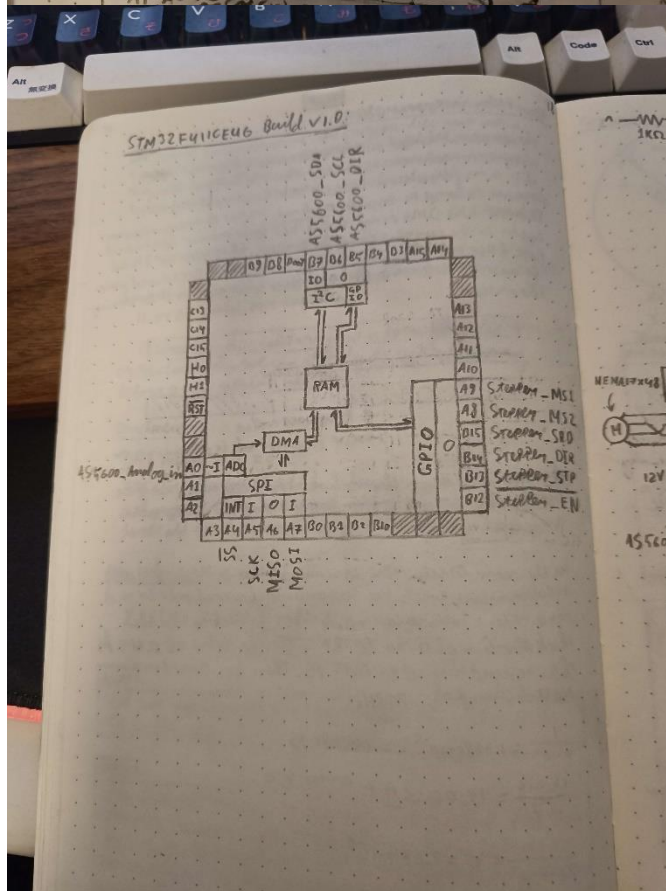 X C V
Alt
無変換
Alt
Code
Ctrl
STM32F411CEU6 Build V1.0
AS5600_SDA
AS5600_SCL
AS5600_DIR
B9 B8 Boot B7 B6 B5 B4 B3 A15 A14
IO O
I²C GPIO
C13
C14
C15
H0
H1
RST
A13
A12
A11
A10
RAM
DMA
GPIO
O
A9 Stepper_MS1
A8 Stepper_MS2
B15 Stepper_SRD
B14 Stepper_DIR
B13 Stepper_STP
B12 Stepper_EN
AS5600_Analog_in A0 ~I ADC
A1 SPI
A2 INT I O I
A3 A4 A5 A6 A7 B0 B1 B2 B10
SS
SCK
MISO
MOSI
1KΩ
NEMA17x48
M
12V
AS560